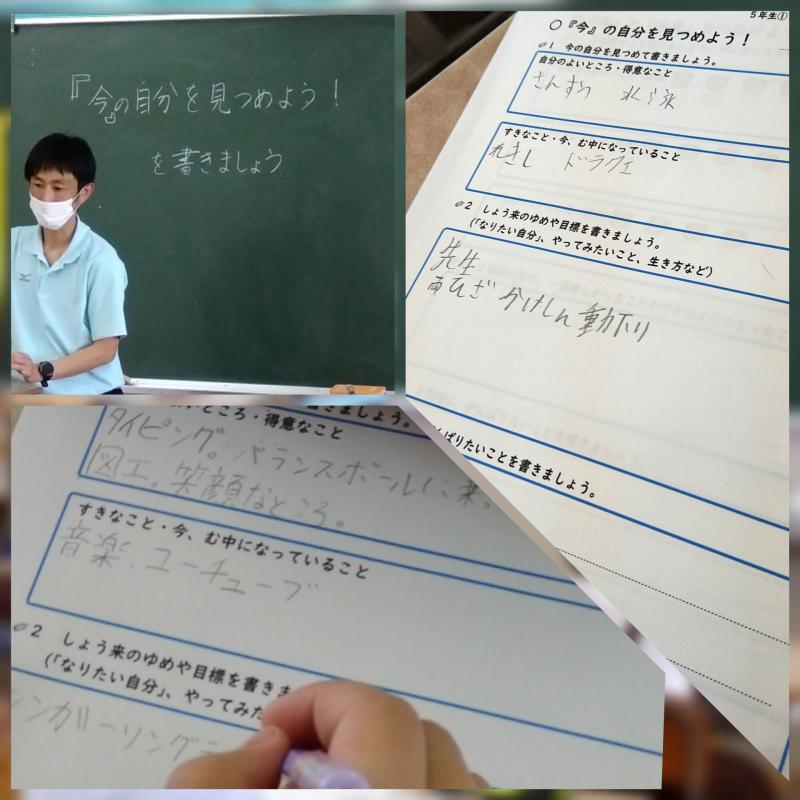 『今』の自分を見つめよう！
を書きましょう
5年生①
○『今』の自分を見つめよう！
1 今の自分を見つめて書きましょう。
自分のよいところ・得意なこと
さんすう 水泳
すきなこと・今、む中になっていること
れきし ドラクエ
2 しょう来のゆめや目標を書きましょう。
（「なりたい自分」、やってみたいこと、生き方など）
先生
両ひざ かけしん動下り
んばりたいことを書きましょう。
いところ・得意なこと
きましょう。
タイピング。バランスボールに乗っ
図工。笑顔なところ。
すきなこと・今、む中になっていること
音楽、ユーチューブ
2 しょう来のゆめや目標を書きま
（「なりたい自分」、やってみた
シンガーソング